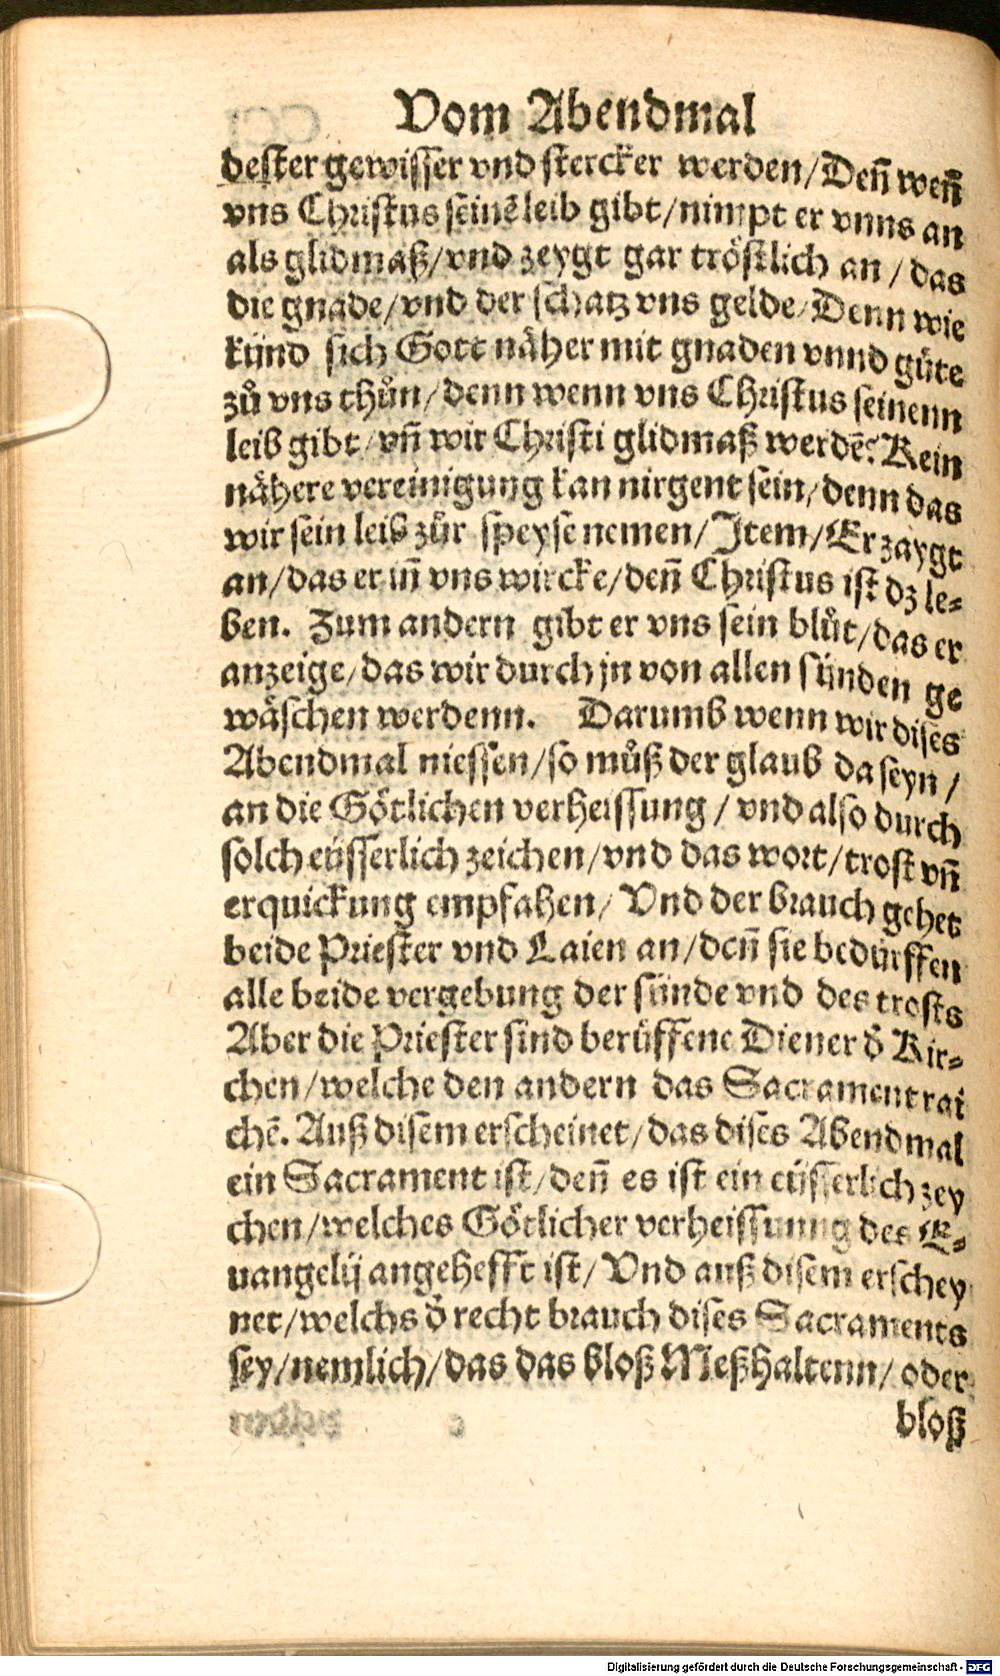 Vom Abendmal
dester gewisser vnd stercker werden/Deñ weñ
vns Christus seinẽ leib gibt/nimpt er vnns an
als glidmaß/vnd zeygt gar tröstlich an/das
die gnade/vnd der schatz vns gelde/Denn wie
künd sich Gott näher mit gnaden vnnd güte
zů vns thůn/denn wenn vns Christus seinenn
leib gibt/vñ wir Christi glidmaß werdẽ? Kein
nähere vereinigung kan nirgent sein/denn das
wir sein leib zůr speyse nemen/Item/Er zaygt
an/das er iñ vns wircke/deñ Christus ist dz le-
ben. Zum andern gibt er vns sein blůt/das er
anzeige/das wir durch jn von allen sünden ge
wäschen werdenn. Darumb wenn wir dises
Abendmal niessen/so můß der glaub da seyn/
an die Götlichen verheissung/vnd also durch
solch eüsserlich zeichen/vnd das wort/trost vñ
erquickung empfahen/Vnd der brauch gehet
beide Priester vnd Laien an/deñ sie bedürffen
alle beide vergebung der sünde vnd des trosts
Aber die Priester sind berüffene Diener d̃ Kir-
chen/welche den andern das Sacrament rai
chẽ. Auß disem erscheinet/das dises Abendmal
ein Sacrament ist/deñ es ist ein eüsserlich zey
chen/welches Götlicher verheissunng des E-
uangelij angehefft ist/Vnd auß disem erschey
net/welchs d̃ recht brauch dises Sacraments
sey/nemlich/das das bloß Meßhaltenn/oder
bloß
Digitalisierung gefördert durch die Deutsche Forschungsgemeinschaft - DFG